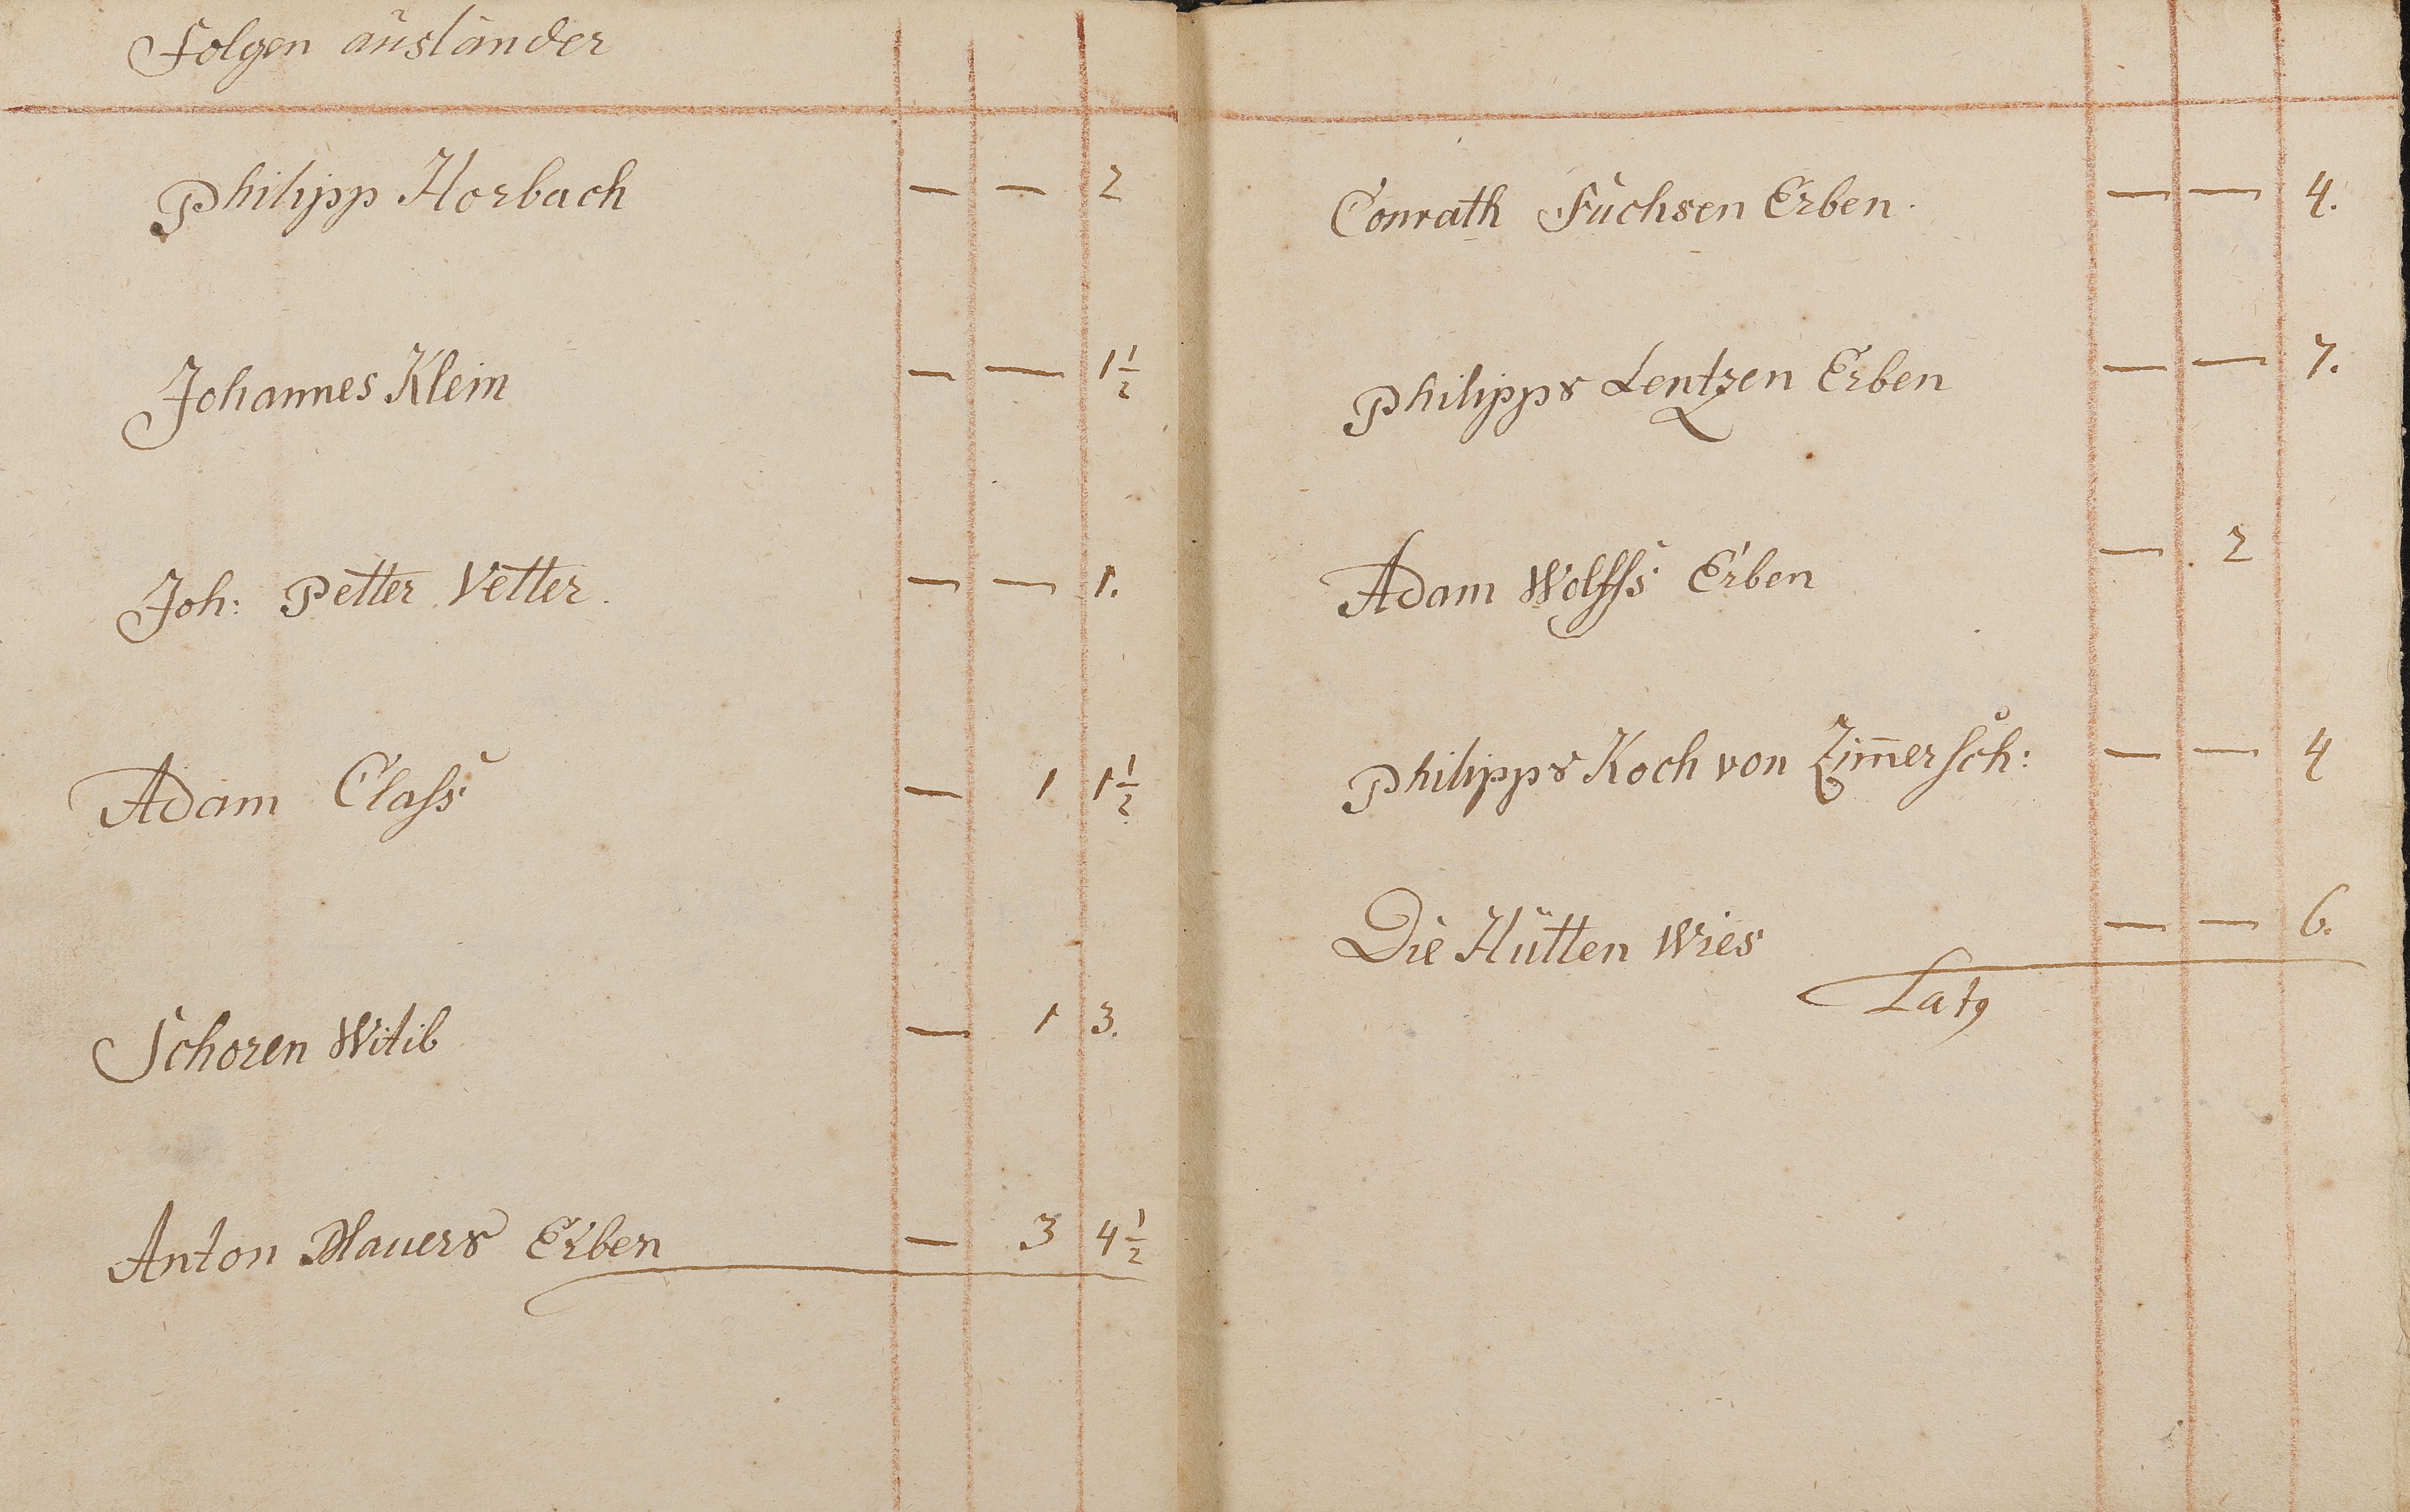 Folgen ausländer
Philipp Horbach — — 2
Johannes Klein — — 1 1/2
Joh: Petter Vetter. — — 1.
Adam Class — 1 1 1/2
Schoren Witib — 1 3.
Anton Mauers Erben — 3 4 1/2
Conrath Fuchsen Erben. — — 4.
Philipps Lentzen Erben — — 7.
Adam Wolffs Erben — 2
Philipps Koch von Zim̄ersch: — — 4
Die Hütten Wies — — 6.